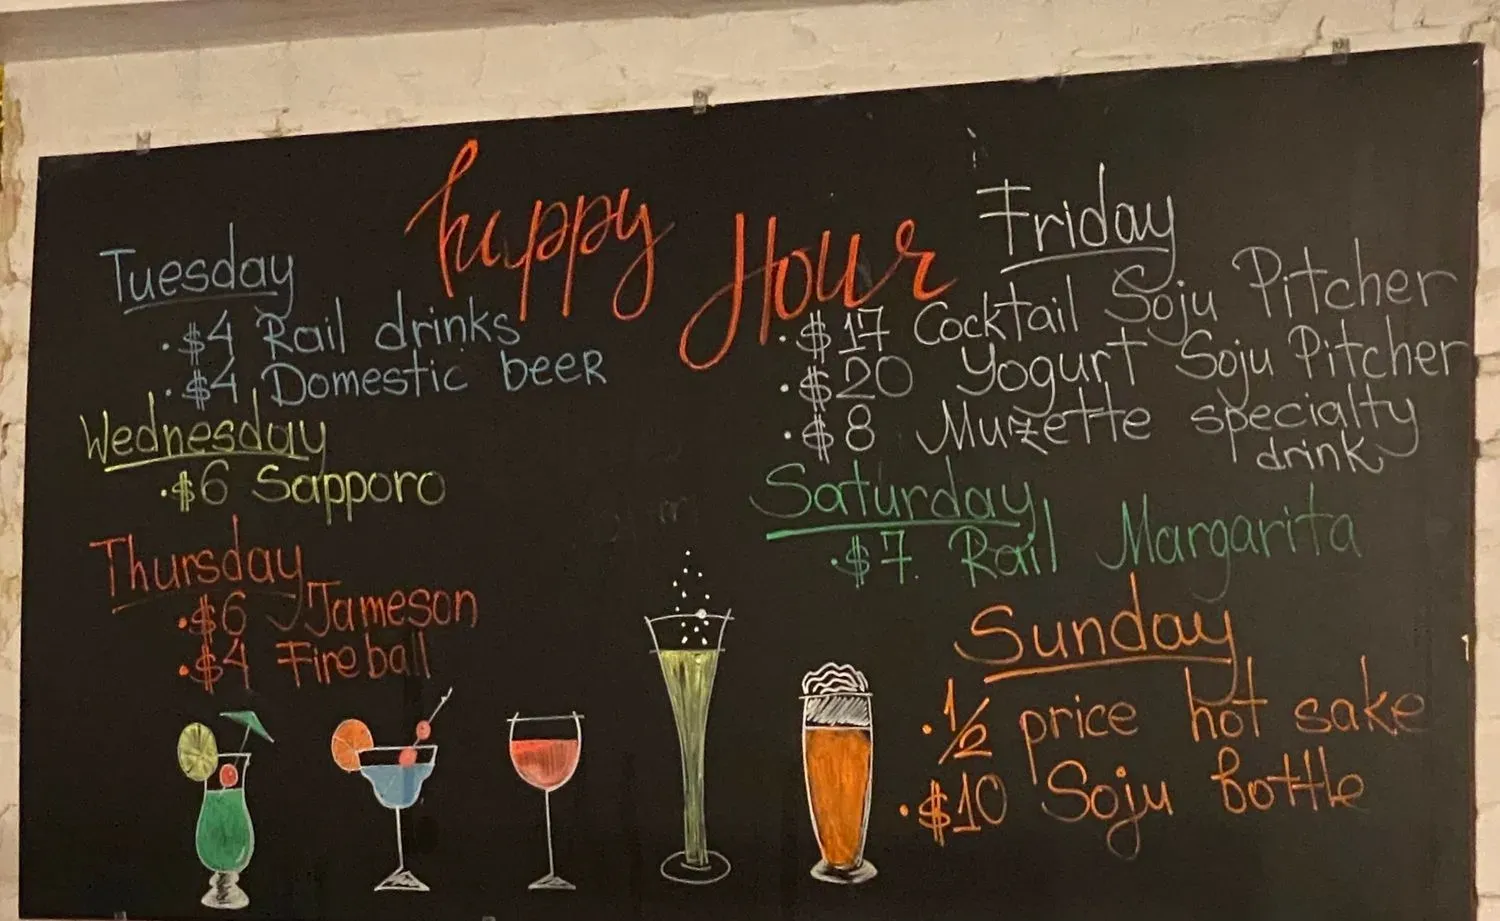 Happy Hour
Tuesday
·$4 Rail drinks
·$4 Domestic beer
Wednesday
·$6 Sapporo
Thursday
·$6 Jameson
·$4 Fireball
Friday
·$17 Cocktail Soju Pitcher
·$20 Yogurt Soju Pitcher
·$8 Muzette specialty
drink
Saturday
·$7 Rail Margarita
Sunday
·1/2 price hot sake
·$10 Soju bottle